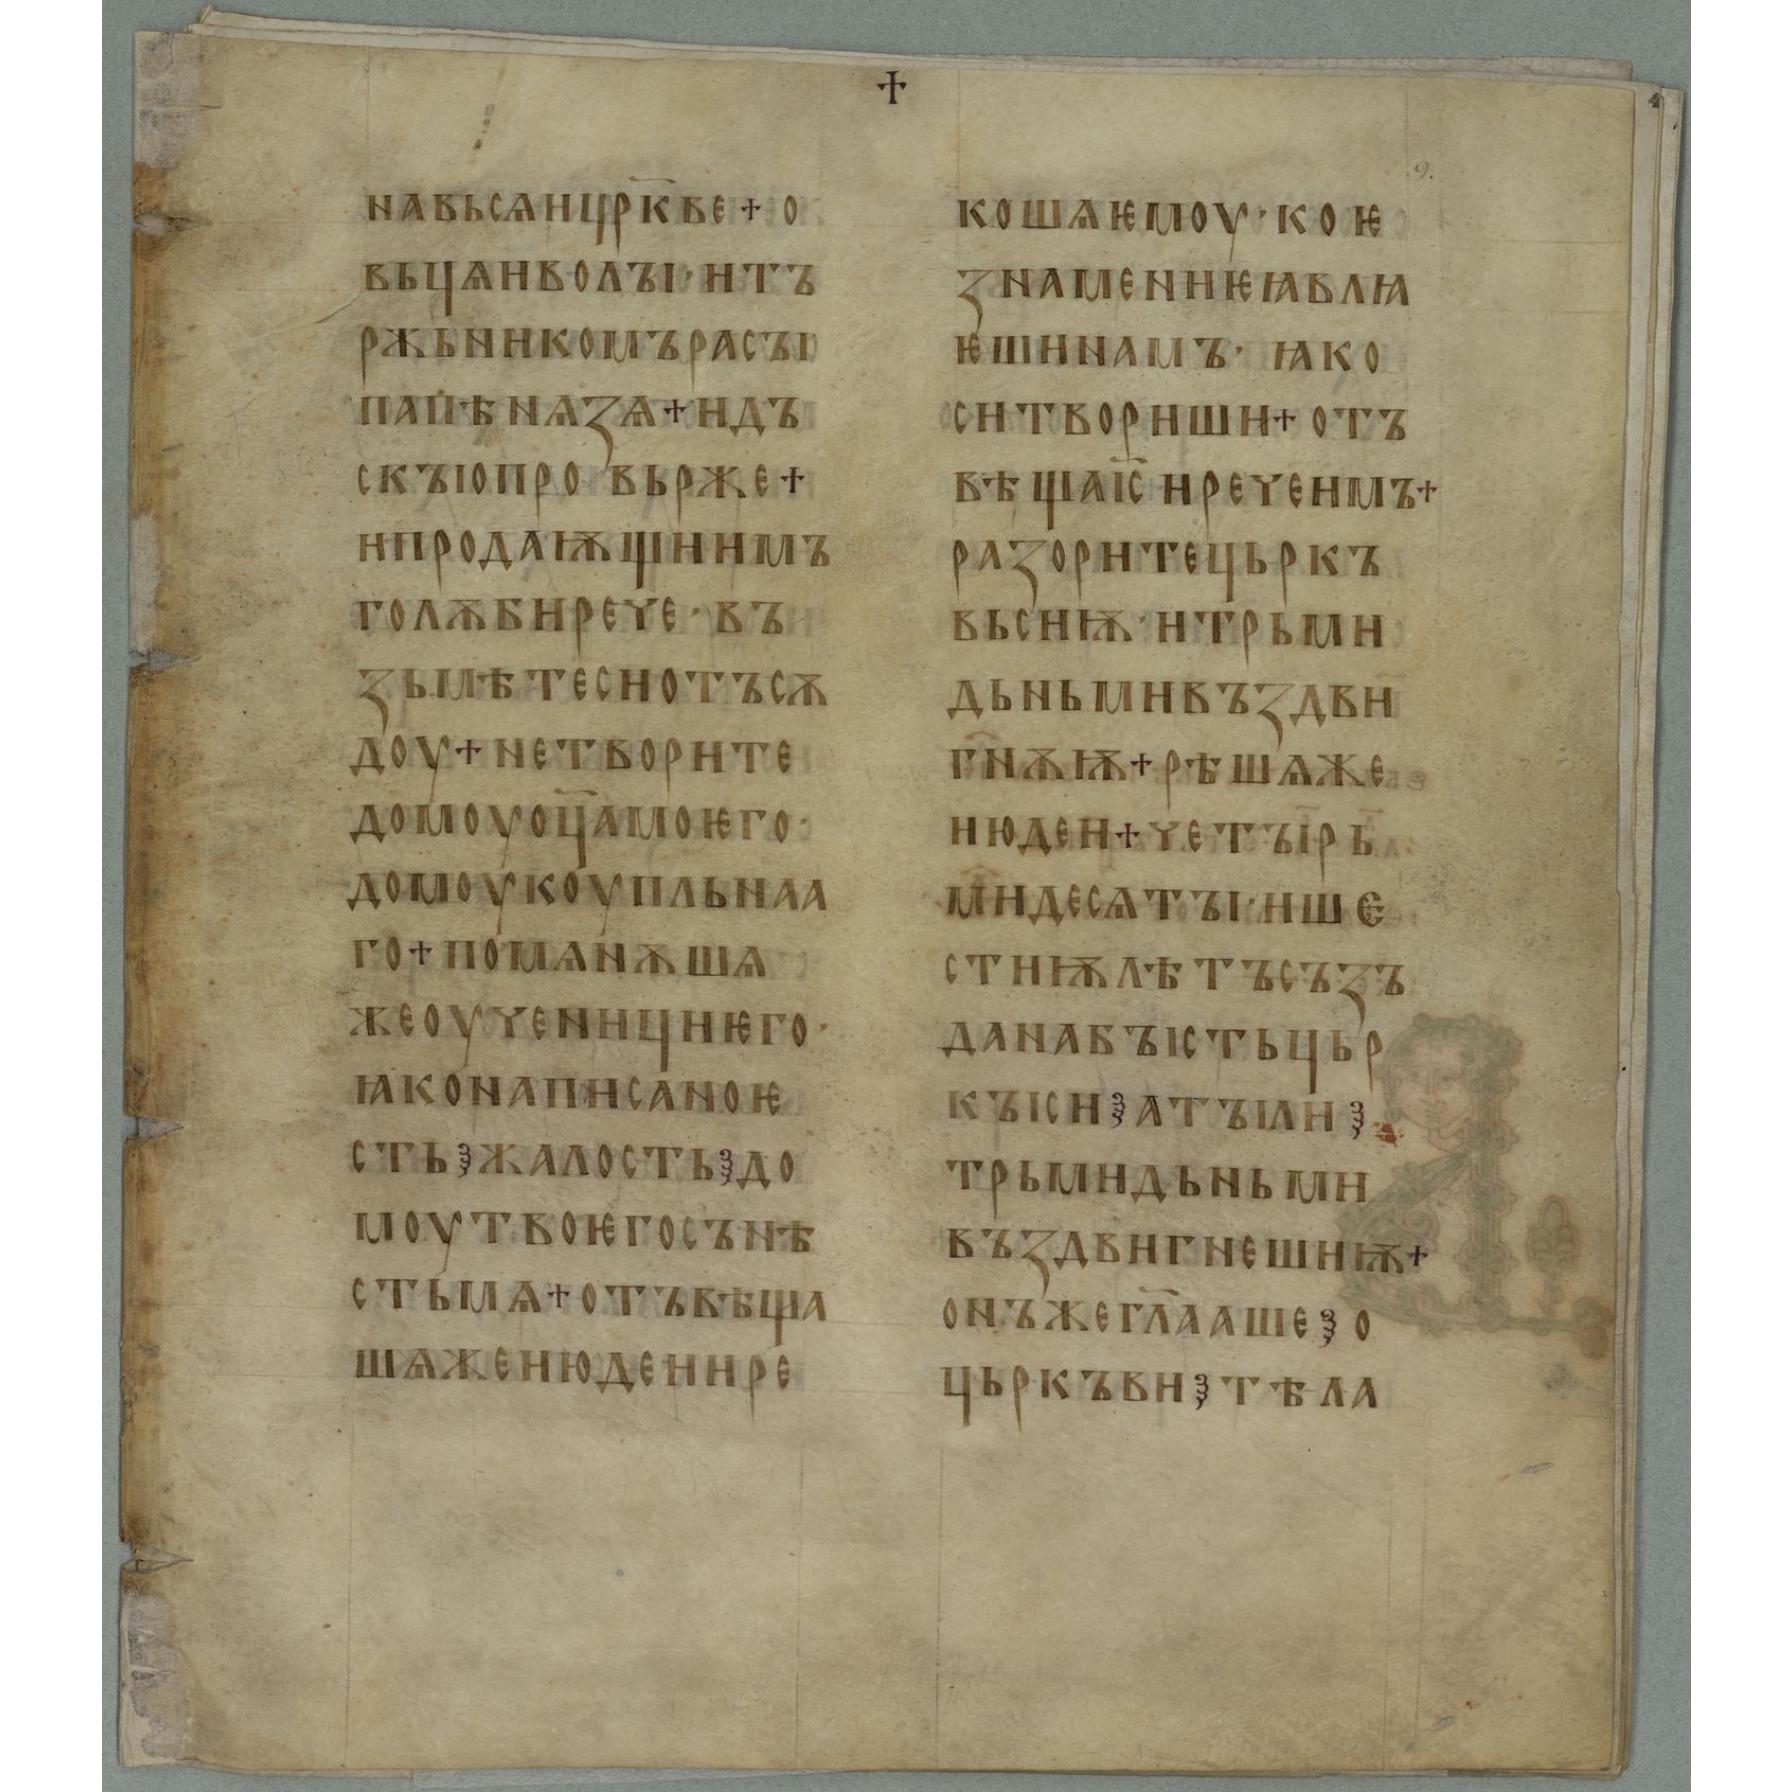 +
9.
навьсѧицр҃кве + о
вьцѧиволъі · итъ
ржьникомърасъі
папѣнѧзѧ + идъ
скъіопро вьрже +
ипродаѭщиимъ
голѫбирече · въ
зьмѣтесиотъсѫ
доу + нетворите
домоуоц҃амоѥго ·
домоукоупльнаа
го + помѧнѫшѧ
жеоученициѥго ·
ꙗконаписаноѥ
сть ⸾ жалость ⸾ до
моутвоѥгосънѣ
стьмѧ + отъвѣща
шѧжеиюдеиире
кошѧѥмоу · коѥ
знамениѥꙗвлꙗ
ѥшинамъ · ꙗко
ситвориши + отъ
вѣщаіс҃иречеимъ +
разоритецьркъ
вьсиѭ · итрьми
дьньмивъздви
гн҃ѫѭ + рѣшѧже
июдеи + четъірь
мидесѧтъі · ише
стиѭлѣтъсъзъ
данабъістьцьр
къіси ⸾ атъіли ⸾
трьмидьньми
въздвигнешиѭ +
онъжегл҃ааше ⸾ о
цьркъви ⸾ тѣла